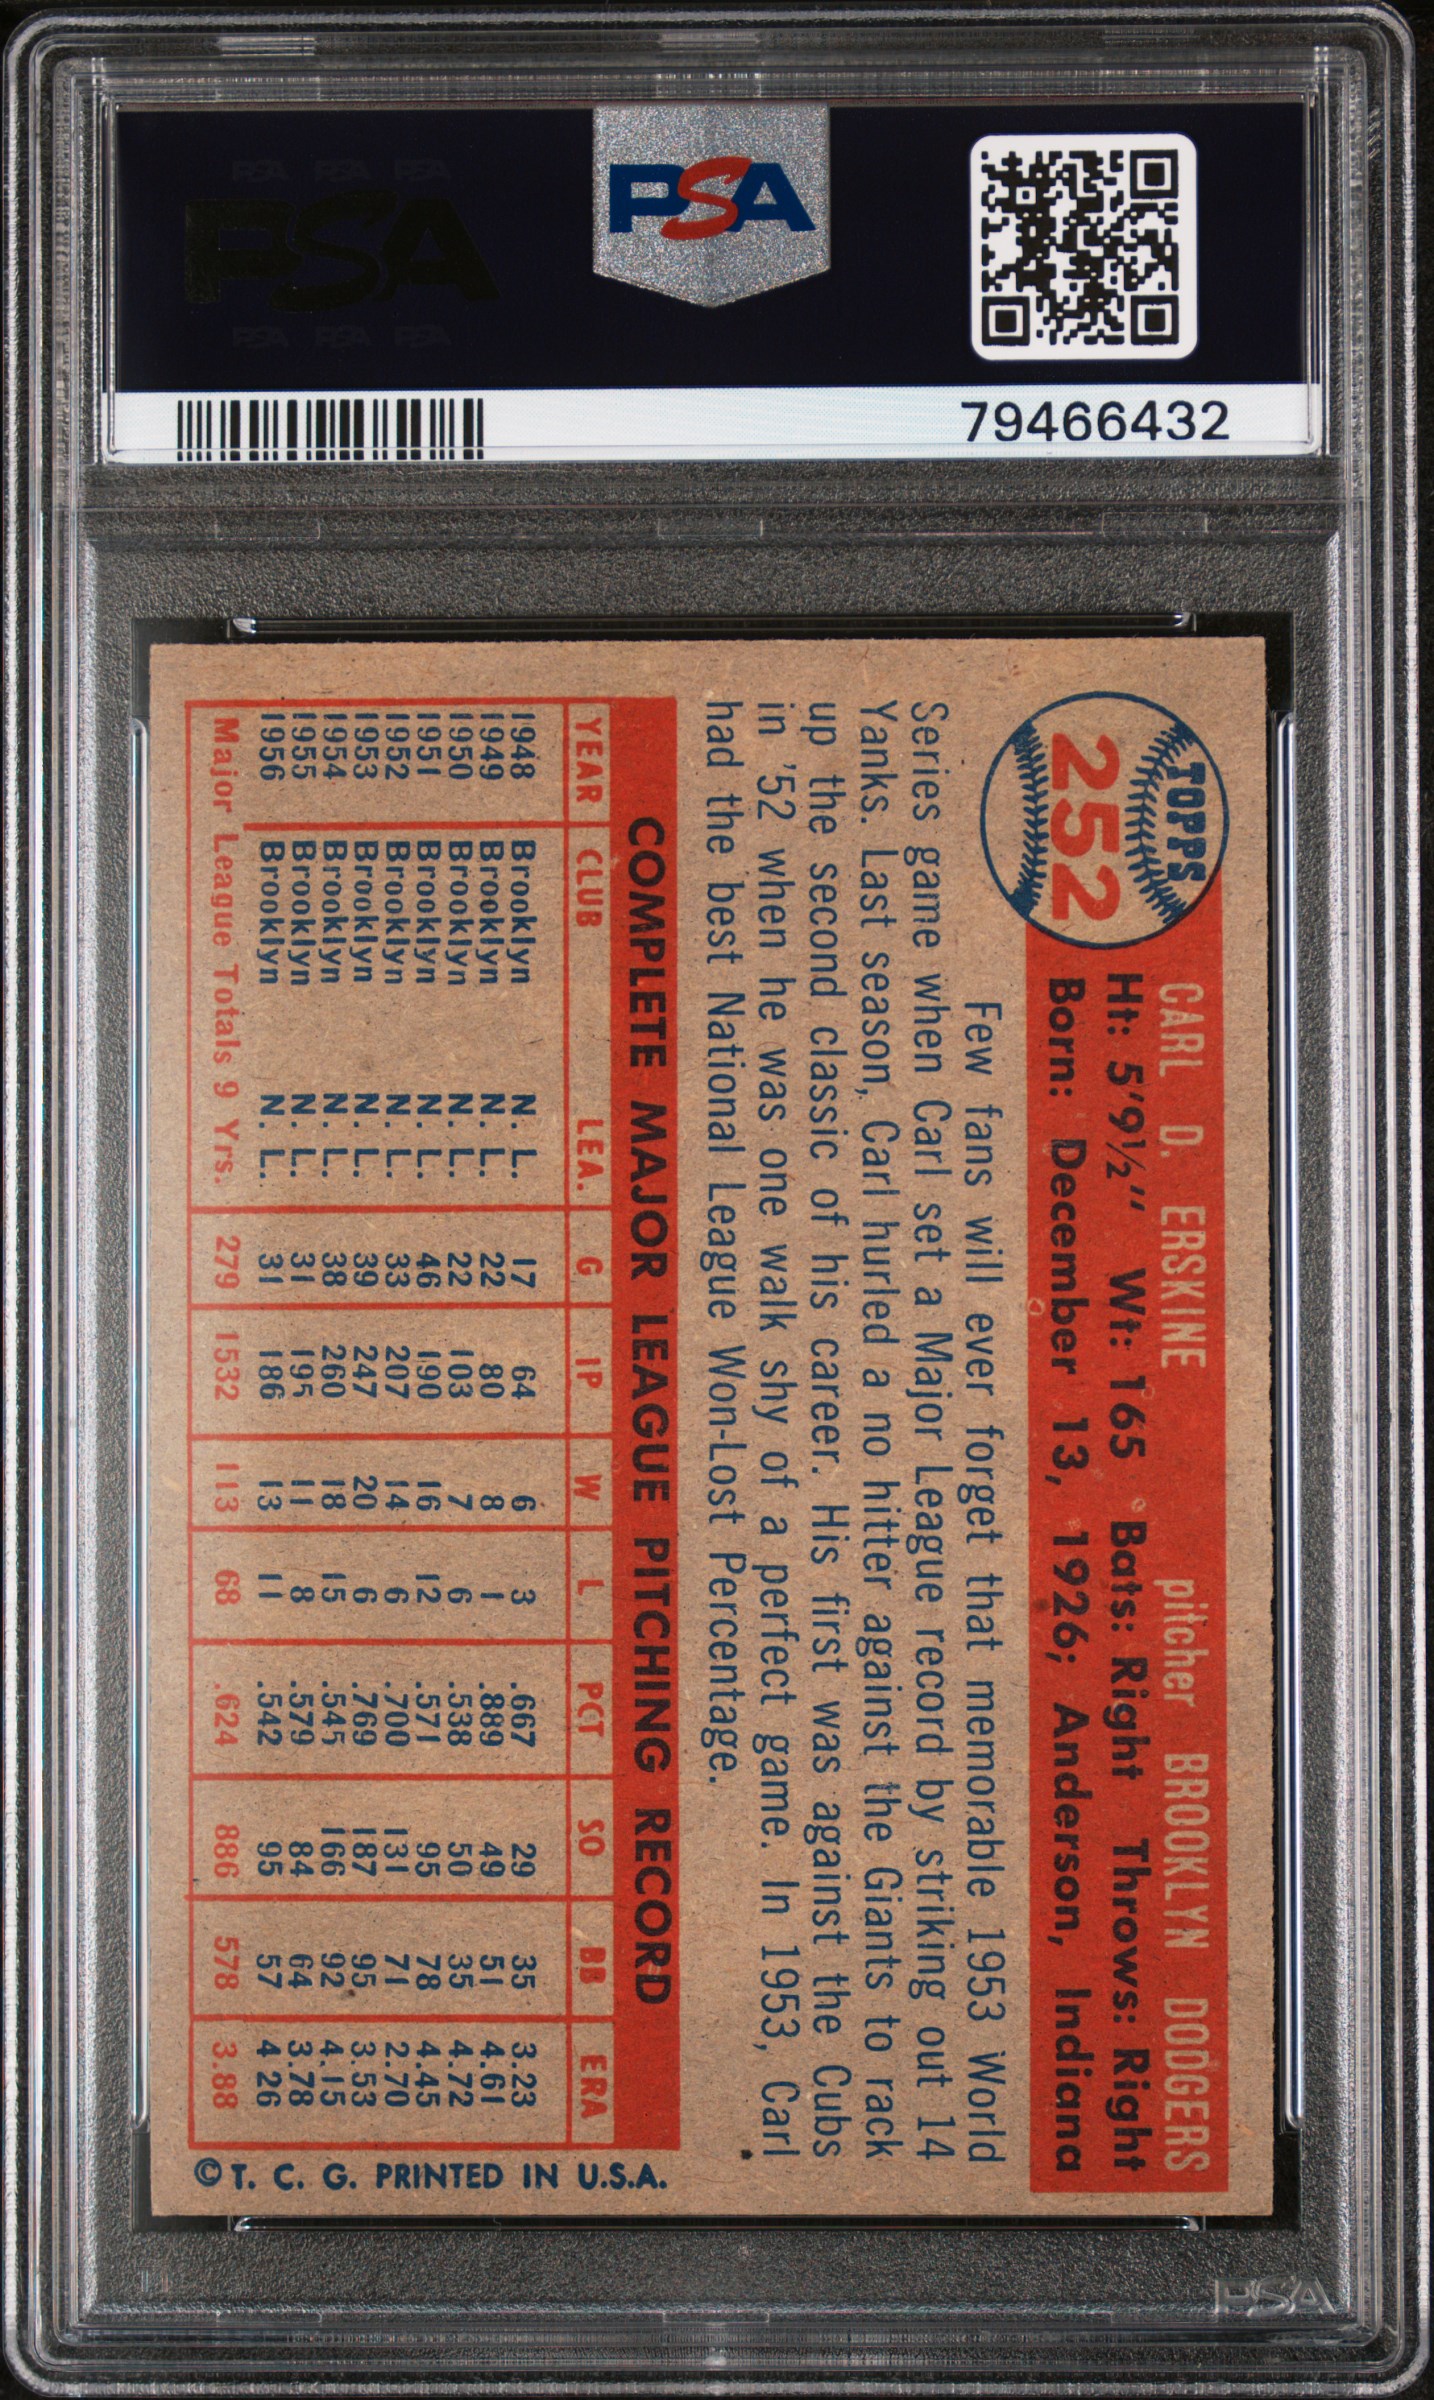 PSA PSA PSA
PSA
PSA PSA PSA
PSA
79466432
TOPPS
252
CARL D. ERSKINE pitcher BROOKLYN DODGERS
Ht: 5'9½" Wt: 165 Bats: Right Throws: Right
Born: December 13, 1926; Anderson, Indiana
Few fans will ever forget that memorable 1953 World
Series game when Carl set a Major League record by striking out 14
Yanks. Last season, Carl hurled a no hitter against the Giants to rack
up the second classic of his career. His first was against the Cubs
in '52 when he was one walk shy of a perfect game. In 1953, Carl
had the best National League Won-Lost Percentage.
COMPLETE MAJOR LEAGUE PITCHING RECORD
YEAR CLUB LEA. G IP W L PCT SO BB ERA
1948 Brooklyn N. L. 17 64 6 3 .667 29 35 3.23
1949 Brooklyn N. L. 22 80 8 1 .889 49 51 4.61
1950 Brooklyn N. L. 22 103 7 6 .538 50 35 4.72
1951 Brooklyn N. L. 46 190 16 12 .571 95 78 4.45
1952 Brooklyn N. L. 33 207 14 6 .700 131 71 2.70
1953 Brooklyn N. L. 39 247 20 6 .769 187 95 3.53
1954 Brooklyn N. L. 38 260 18 15 .545 166 92 4.15
1955 Brooklyn N. L. 31 195 11 8 .579 84 64 3.78
1956 Brooklyn N. L. 31 186 13 11 .542 95 57 4.26
Major League Totals 9 Yrs. 279 1532 113 68 .624 886 578 3.88
© T. C. G. PRINTED IN U.S.A.
PSA